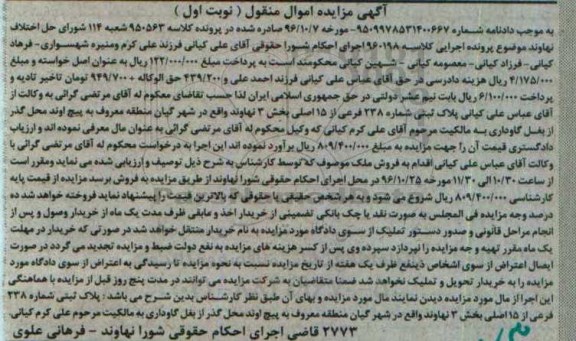 آگهی مزایده اموال منقول ( نوبت اول )
به موجب دادنامه شماره ۹۵۰۹۹۷۸۵۳۱۴۰۰۶۶۷- مورخه ۹۶/۱۰/۷ صادره شده در پرونده کلاسه ۹۵۰۵۶۳ شعبه ۱۱۴ شورای حل اختلاف
نهاوند موضوع پرونده اجرایی کلاسه ۹۶۰۱۹۸ اجرای احکام شورا حقوقی آقای علی کیانی فرزند علی کرم ومنیره شهسواری- فرهاد
کیانی - فرزاد کیانی- معصومه کیانی - شهین کیانی محکومند است به پرداخت مبلغ ۱۲۲/۰۰۰/۰۰۰ ریال به عنوان اصل خواسته و مبلغ
۴/۱۷۵/۰۰۰ ریال هزینه دادرسی در حق آقای عباس علی کیانی فرزند احمد علی و ۴۳۹/۲۰۰ حق الوکاله + ۹۴۹/۷۰۰ تومان تاخیر تادیه و
پرداخت ۶/۱۰۰/۰۰۰ ریال بابت نیم عشر دولتی در حق جمهوری اسلامی ایران لذا حسب تقاضای معکوم له آقای مرتضی گرائی به وکالت از
آقای عباس علی کیانی پلاک ثبتی شماره ۲۳۸ فرعی از ۱۵ اصلی بخش ۳ نهاوند واقع در شهر گیان منطقه معروف به پیچ اوند محل گذر
از بغل گاوداری به مالکیت مرحوم آقای علی کرم کیانی که وکیل محکوم له آقای مرتضی گرائی به عنوان مال معرفی نموده اند و ارزیاب
دادگستری قیمت آن را جهت مزایده به مبلغ ۸۰۹/۴۰۰/۰۰۰ ریال برآورد نموده اند این اجرا به درخواست محکوم له آقای مرتضی گرائی با
وکالت آقای عباس علی کیانی اقدام به فروش ملک موصوف که توسط کارشناس به شرح ذیل توصیف و ارزیابی شده می نماید ومقرر است
از ساعت ۱۰/۳۰ الی ۱۱/۳۰ مورخه ۹۶/۱۰/۲۵ در محل اجرای احکام حقوقی شورا نهاوند از طریق مزایده به فروش برسد مزایده از قیمت پایه
کارشناسی ۸۰۹/۴۰۰/۰۰۰ ریال شروع می شود و به هر شخص حقیقی یا حقوقی که بالاترین قیمت را پیشنهاد نماید فروخته خواهد شد ده
درصد وجه مزایده فی المجلس به صورت نقد یا چک بانکی تضمینی از خریدار اخذ و مابقی ظرف مدت یک ماه از خریدار وصول و پس از
انجام مراحل قانونی و صدور دستور تملیک از سوی دادگاه مورد مزایده به نام خریدار منتقل خواهد شد در صورتی که خریدار در مهلت
یک ماه مقرر تهیه و جه مزایده را نپردازد سپرده وی پس از کسر هزینه های مزایده به نفع دولت ضبط و مزایده تجدید می گردد در صورت
ایصال اعتراض از سوی اشخاص ذینفع ظرف یک هفته از تاریخ مزایده نسبت به نحوه مزایده تا رسیدگی به اعتراض از سوی دادگاه مورد
مزایده را به خریدار تحویل و تملیک نخواهد شد ضمنا متقاضیان به شرکت مزایده می توانند در مدت پنج روز قبل از مزایده با هماهنگی
این اجرا از مال مورد مزایده دیدن نمایند مال مورد مزایده و بهای آن طبق نظر کارشناس بدین شرح می باشد : پلاک ثبتی شماره ۲۳۸
فرعی از ۱۵ اصلی بخش ۳ نهاوند واقع در شهر گیان منطقه معروف به پیچ اوند محل گذر از بغل گاوداری به مالکیت مرحوم علی کرم کیانی.
۲۷۷۳ قاضی اجرای احکام حقوقی شورا نهاوند - فرهانی علوی